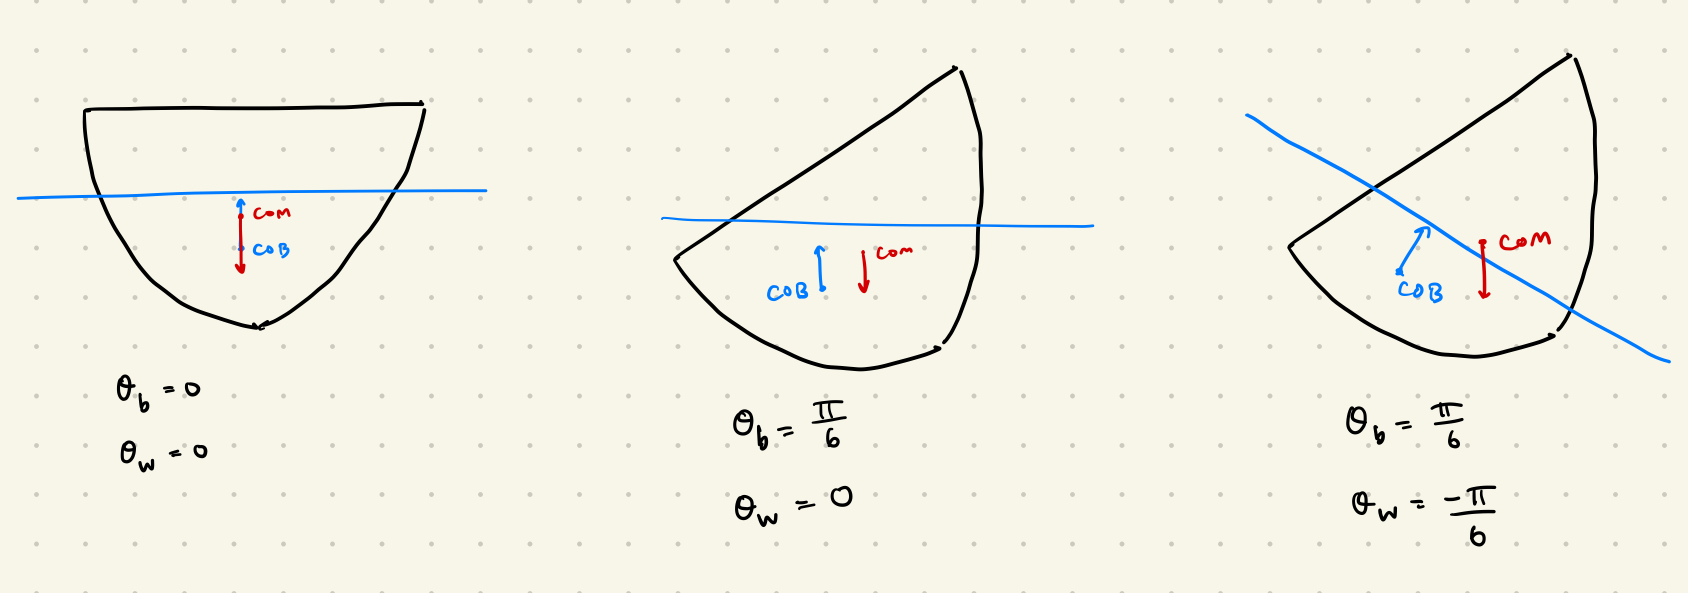 COM
COB
θ_b = 0
θ_w = 0
COM
COB
θ_b = π/6
θ_w = 0
COM
COB
θ_b = π/6
θ_w = -π/6